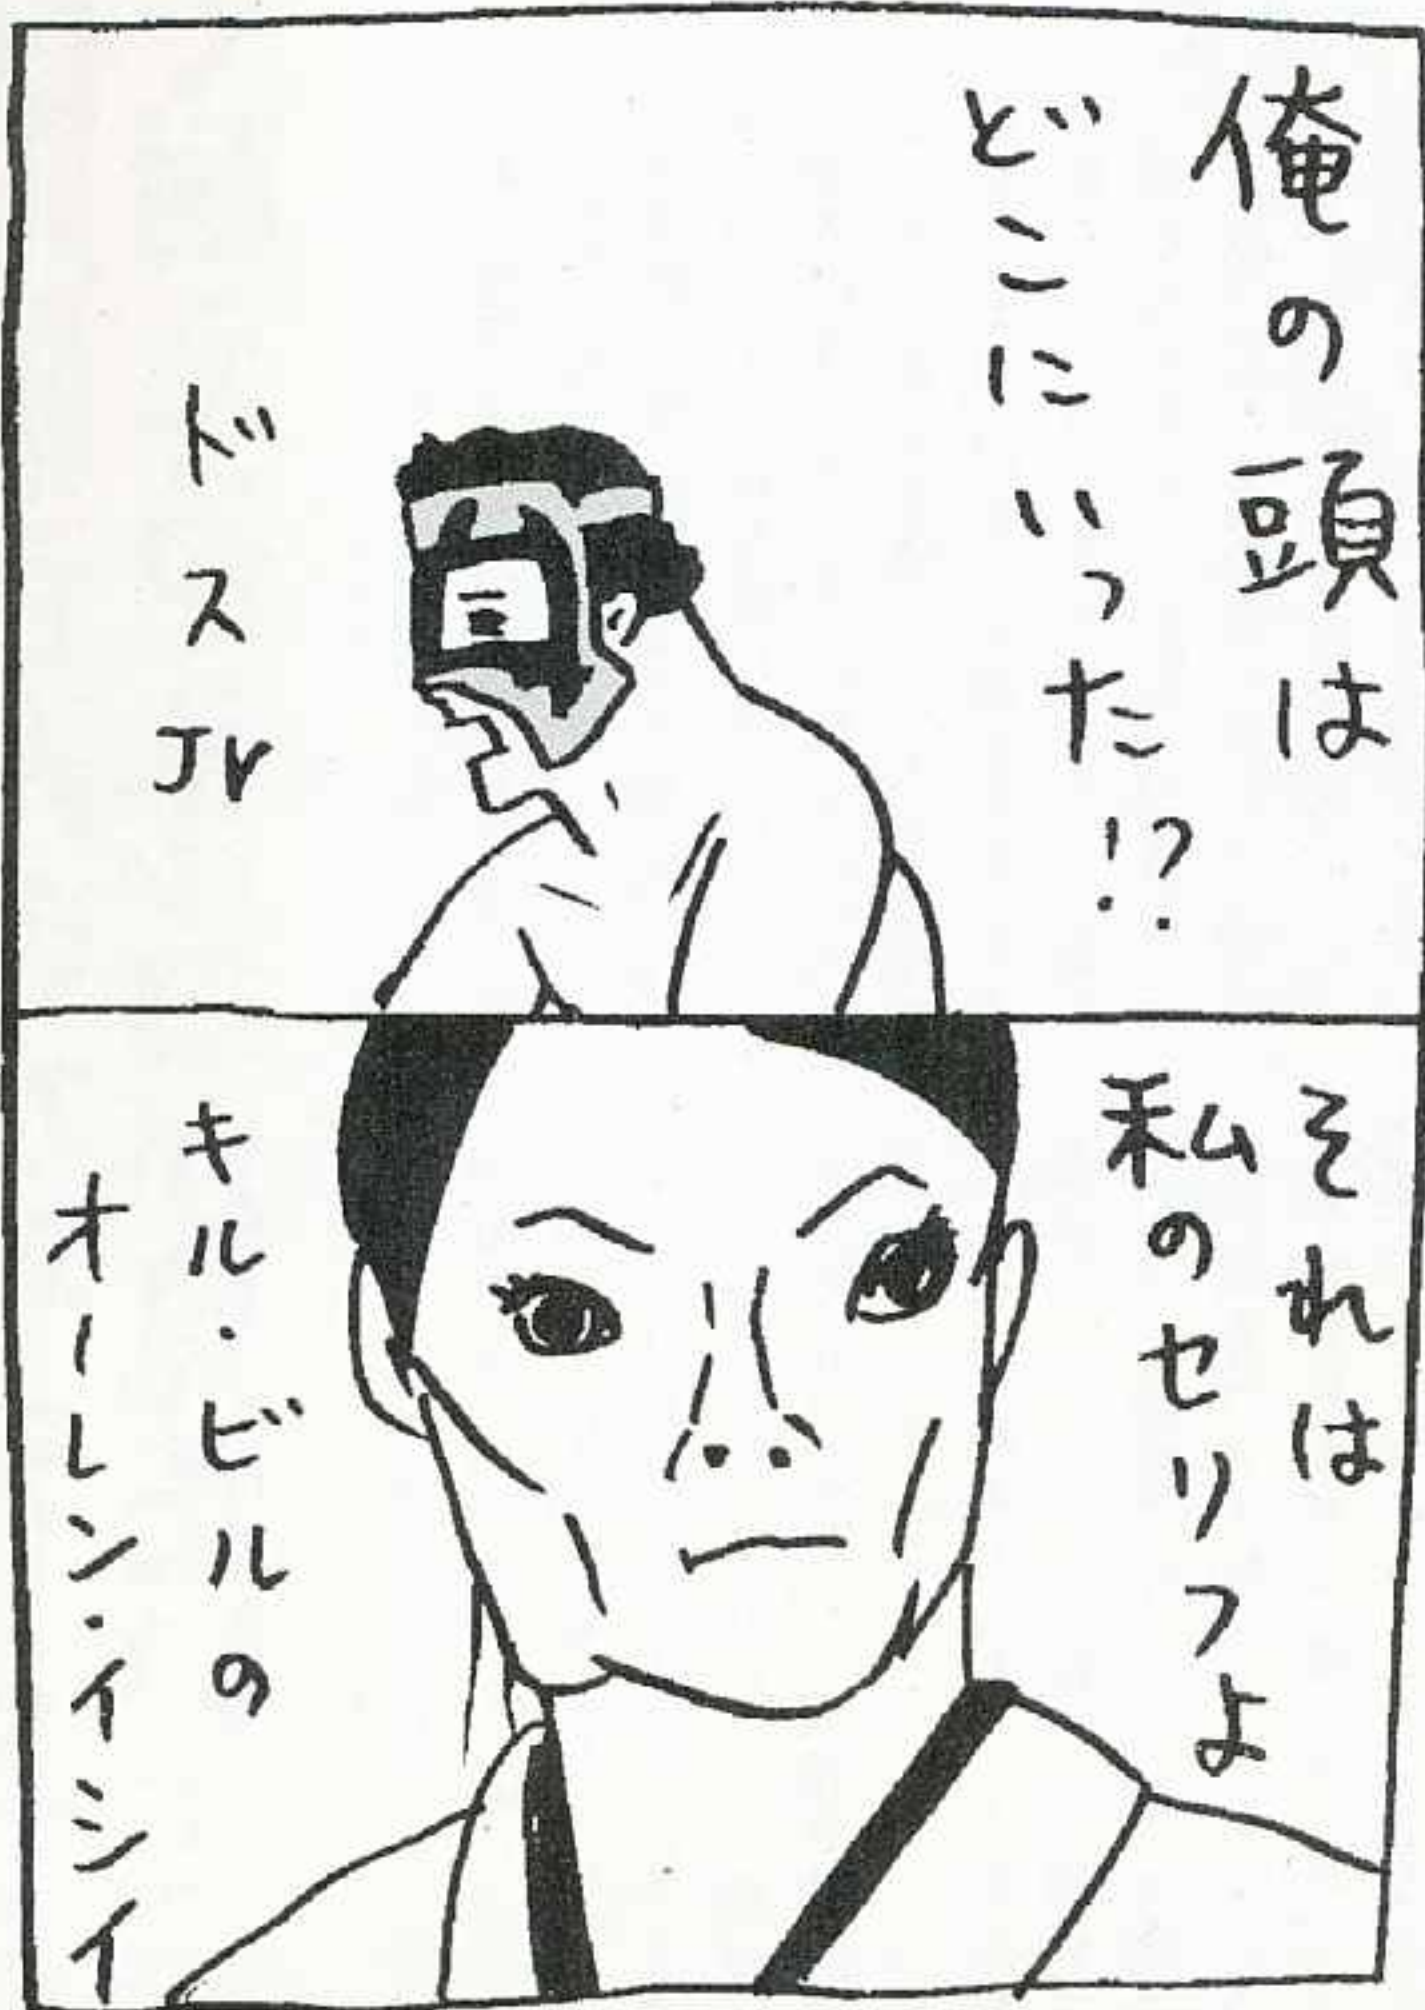 俺の頭は
どこにいった!?
ドスJr
それは
私のセリフよ
キル・ビルの
オーレン・イシイ